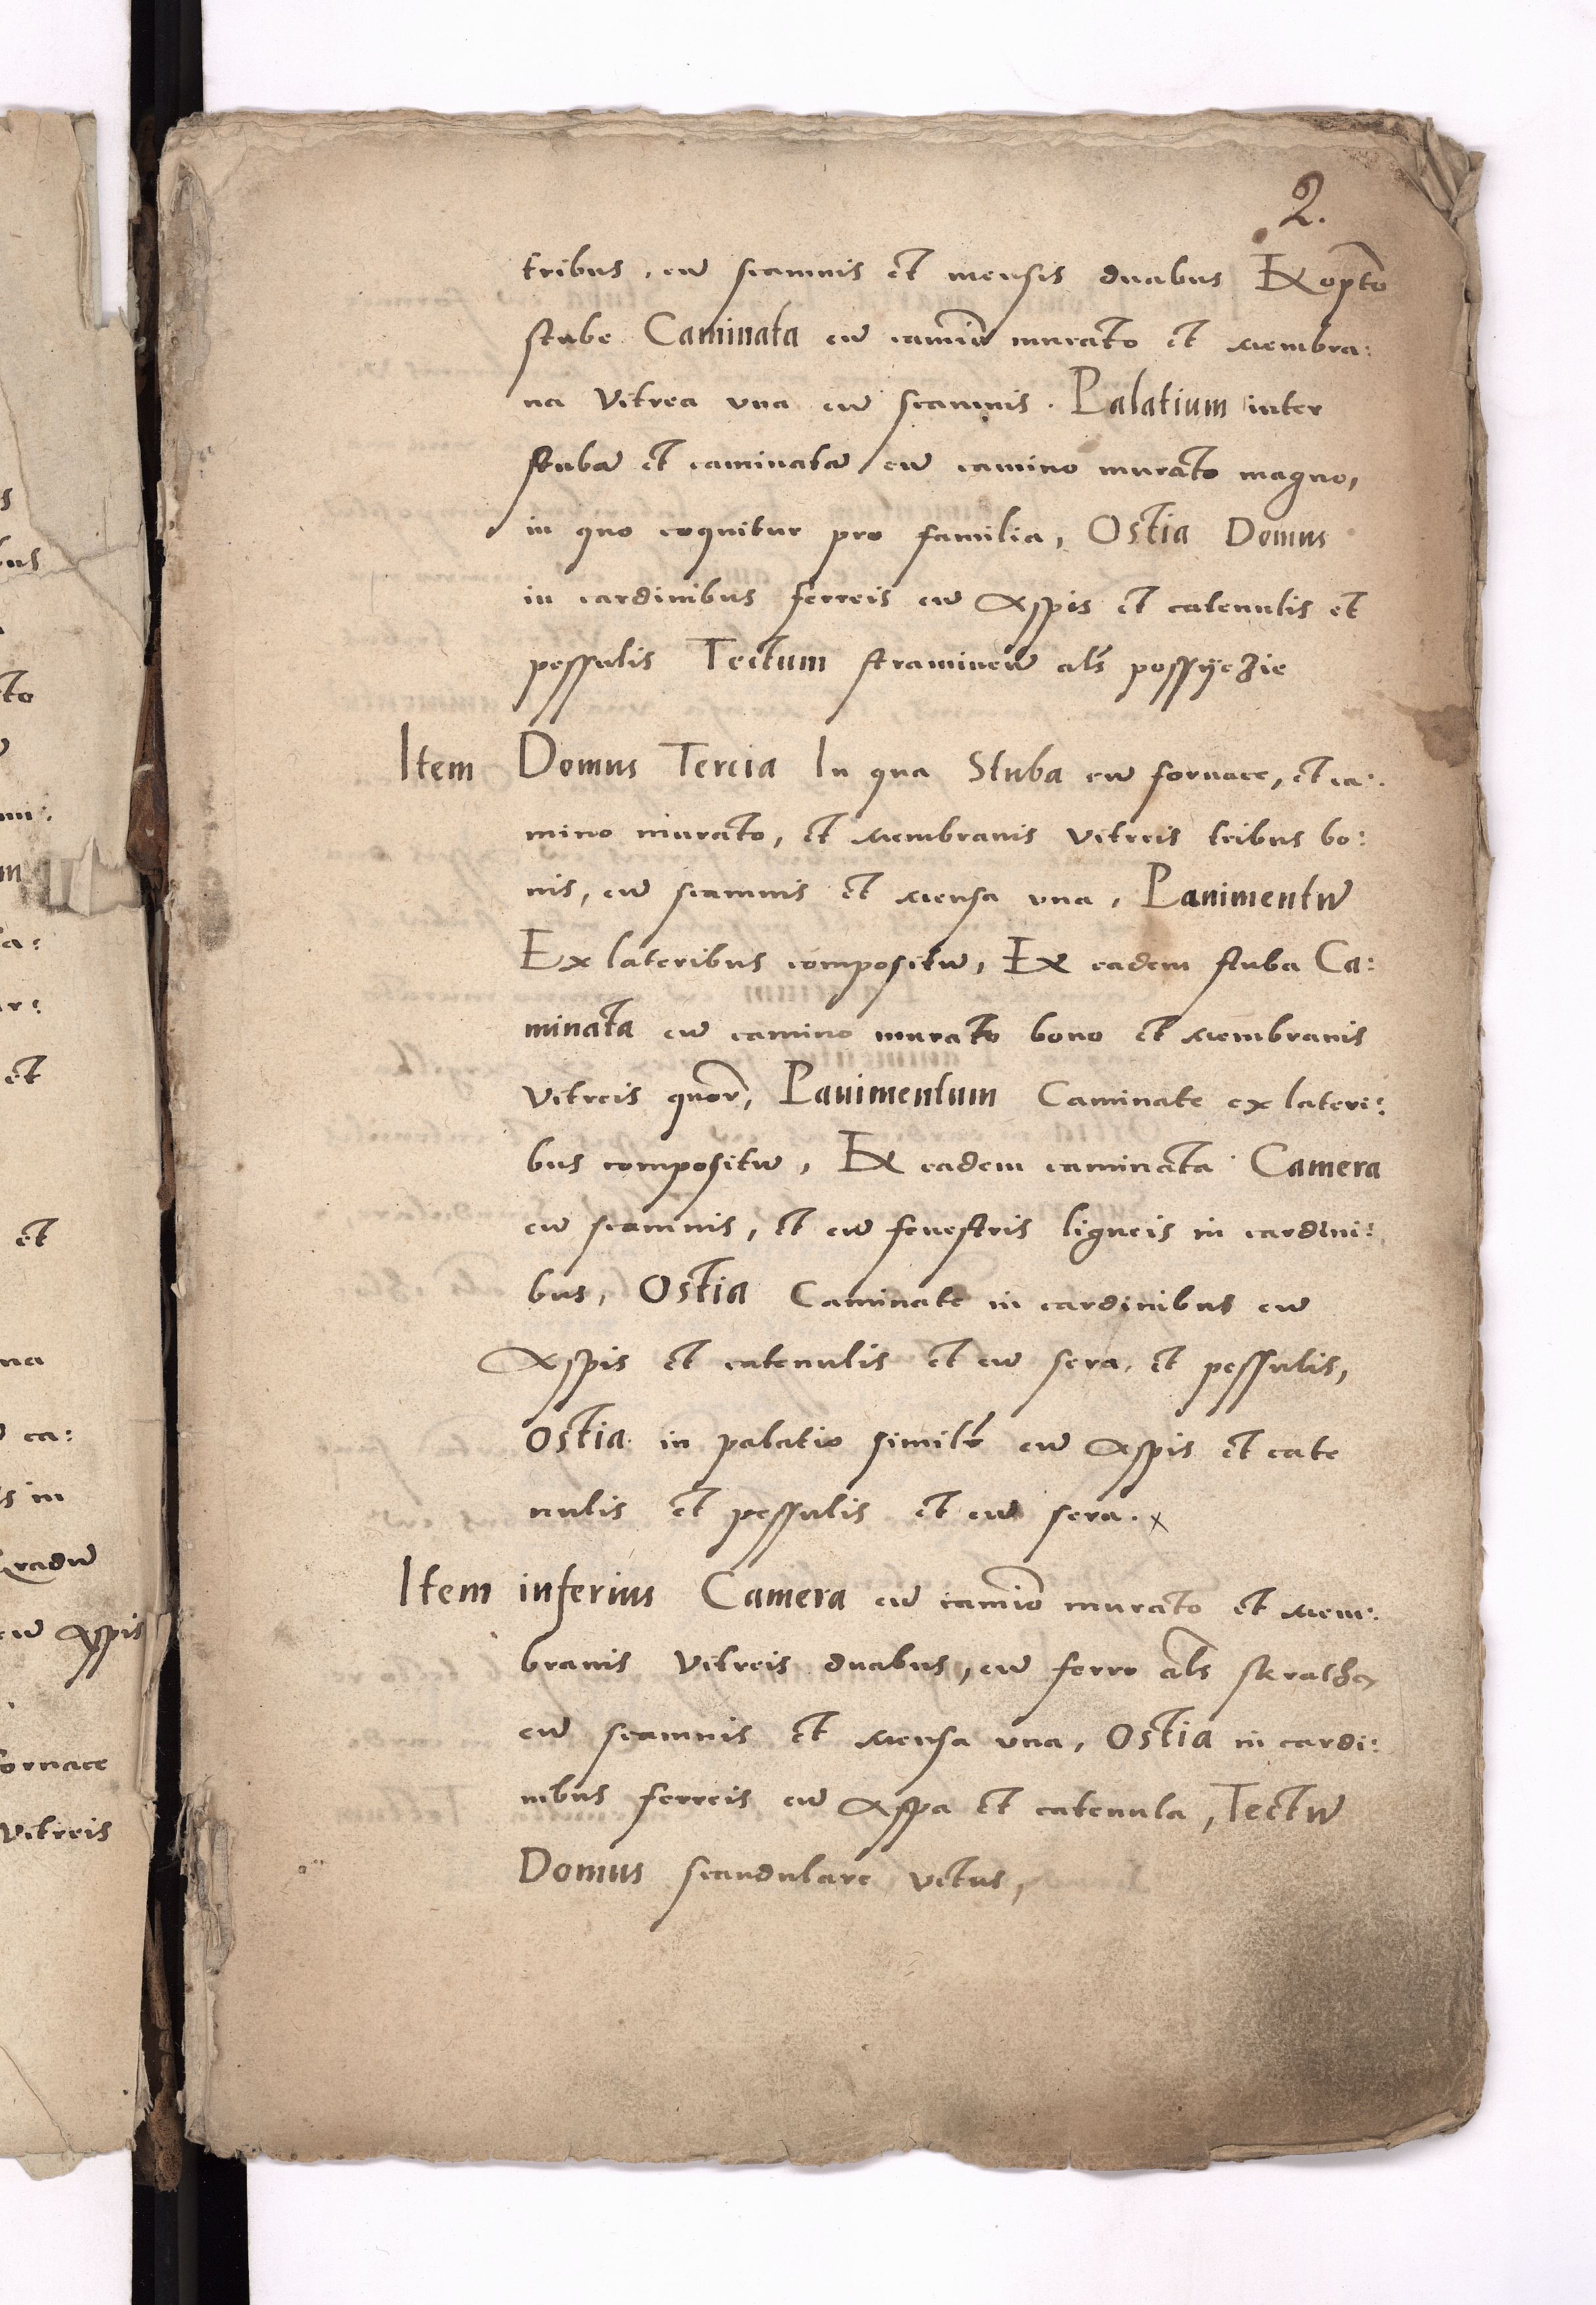 2.
tribus, cū scamnis et mensis duabus Ex opīto
stube Caminata cū camīo murato et membra:
na Vitrea vna cū scamnis. Palatium inter
stubā et caminatā cū camino murato magno,
in quo coquitur pro familia, Ostia Domus
in cardinibus ferreis cū Aspis et catenulis et
pessulis Tectum stramineū als possyczie
Item Domus Tercia In qua Stuba cū fornace, et ca:
mino murato, et membranis vitreis tribus bo:
nis, cū scamnis et mensa vna, Pauimentū
Ex lateribus compositū, Ex eadem stuba Ca:
minata cū camino murato bono et membranis
vitreis quor, Pauimentum Caminate ex lateri:
bus compositū, Ex eadem caminata Camera
cū scamnis, et cū fenestris ligneis in cardini:
bus, Ostia Caminate in cardinibus cū
Aspis et catenulis et cū sera, et pessulis,
Ostia in palatio similr cū Aspis et cate
nulis et pessulis et cū sera. x
Item inferius Camera cū camīo murato et mem:
branis Vitreis duabus, cū ferro als
cū scamnis et mensa vna, Ostia in cardi:
nibus ferreis cū Aspa et catenula, Tectū
Domus scandulare vetus,
et
et
na
ca:
s in
cū Aspis
fornace
Vitreis